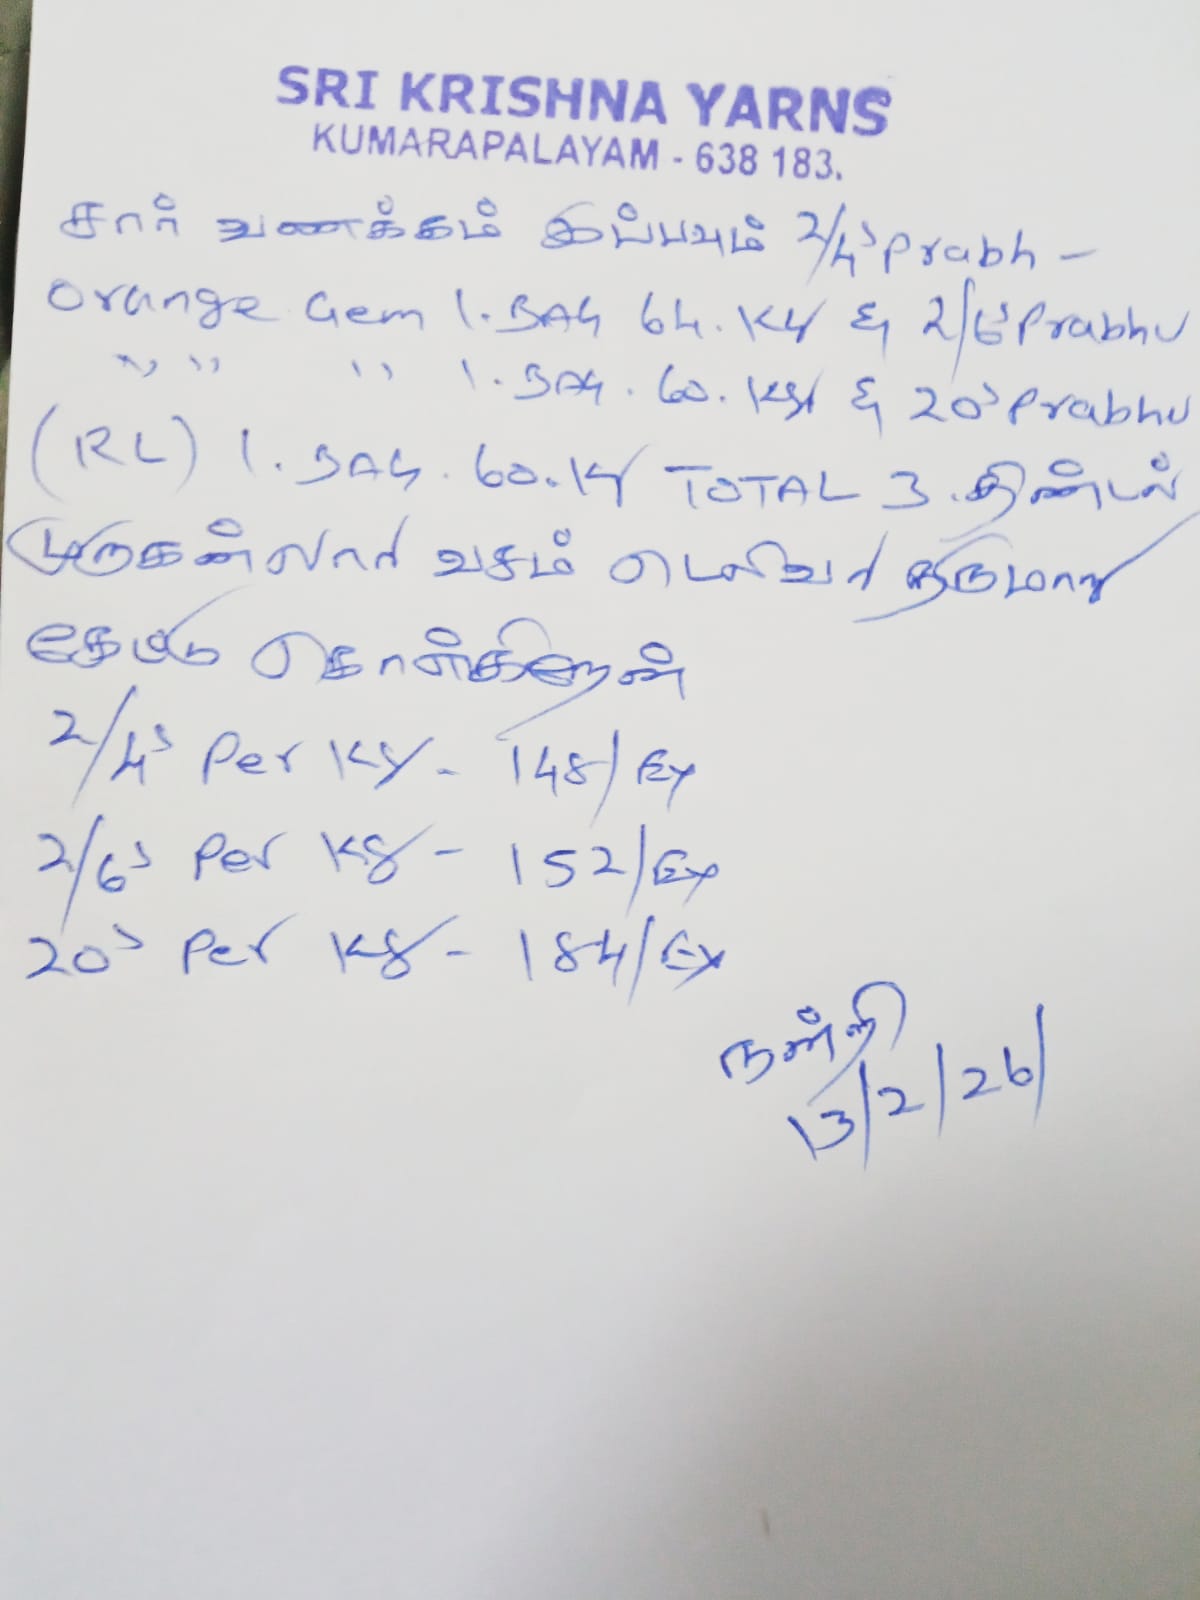 SRI KRISHNA YARNS
KUMARAPALAYAM - 638 183.
சார் வணக்கம் இப்பவும் 2/4s Prabh -
Orange Gem 1. BAG 64. Kg & 2/6s Prabhu
" " " 1. BAG. 60. Kg & 20s Prabhu
(RL) 1. BAG. 60. Kg TOTAL 3. திண்டல்
முருகன் லாரி வசம் டெலிவரி தருமாறு
கேட்டு கொள்கிறேன்
2/4s Per Kg - 148/Ex
2/6s Per Kg - 152/Ex
20s Per Kg - 184/Ex
நன்றி
13/2/26/